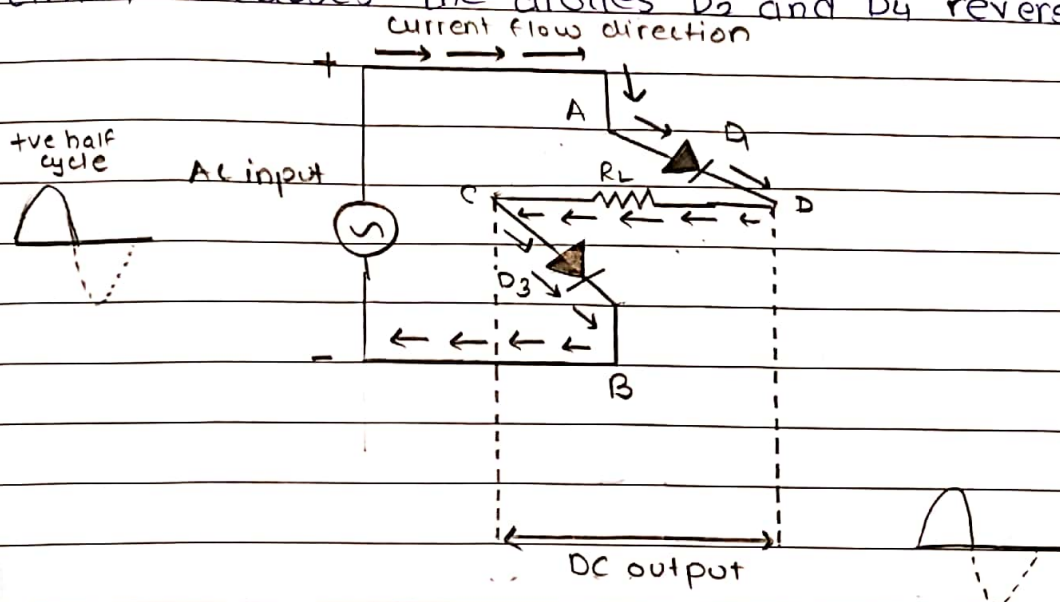 the diodes D2 and D4 revers
current flow direction
+
A
D1
+ve half
cycle
AC input
RL
C
D
D3
-
B
DC output